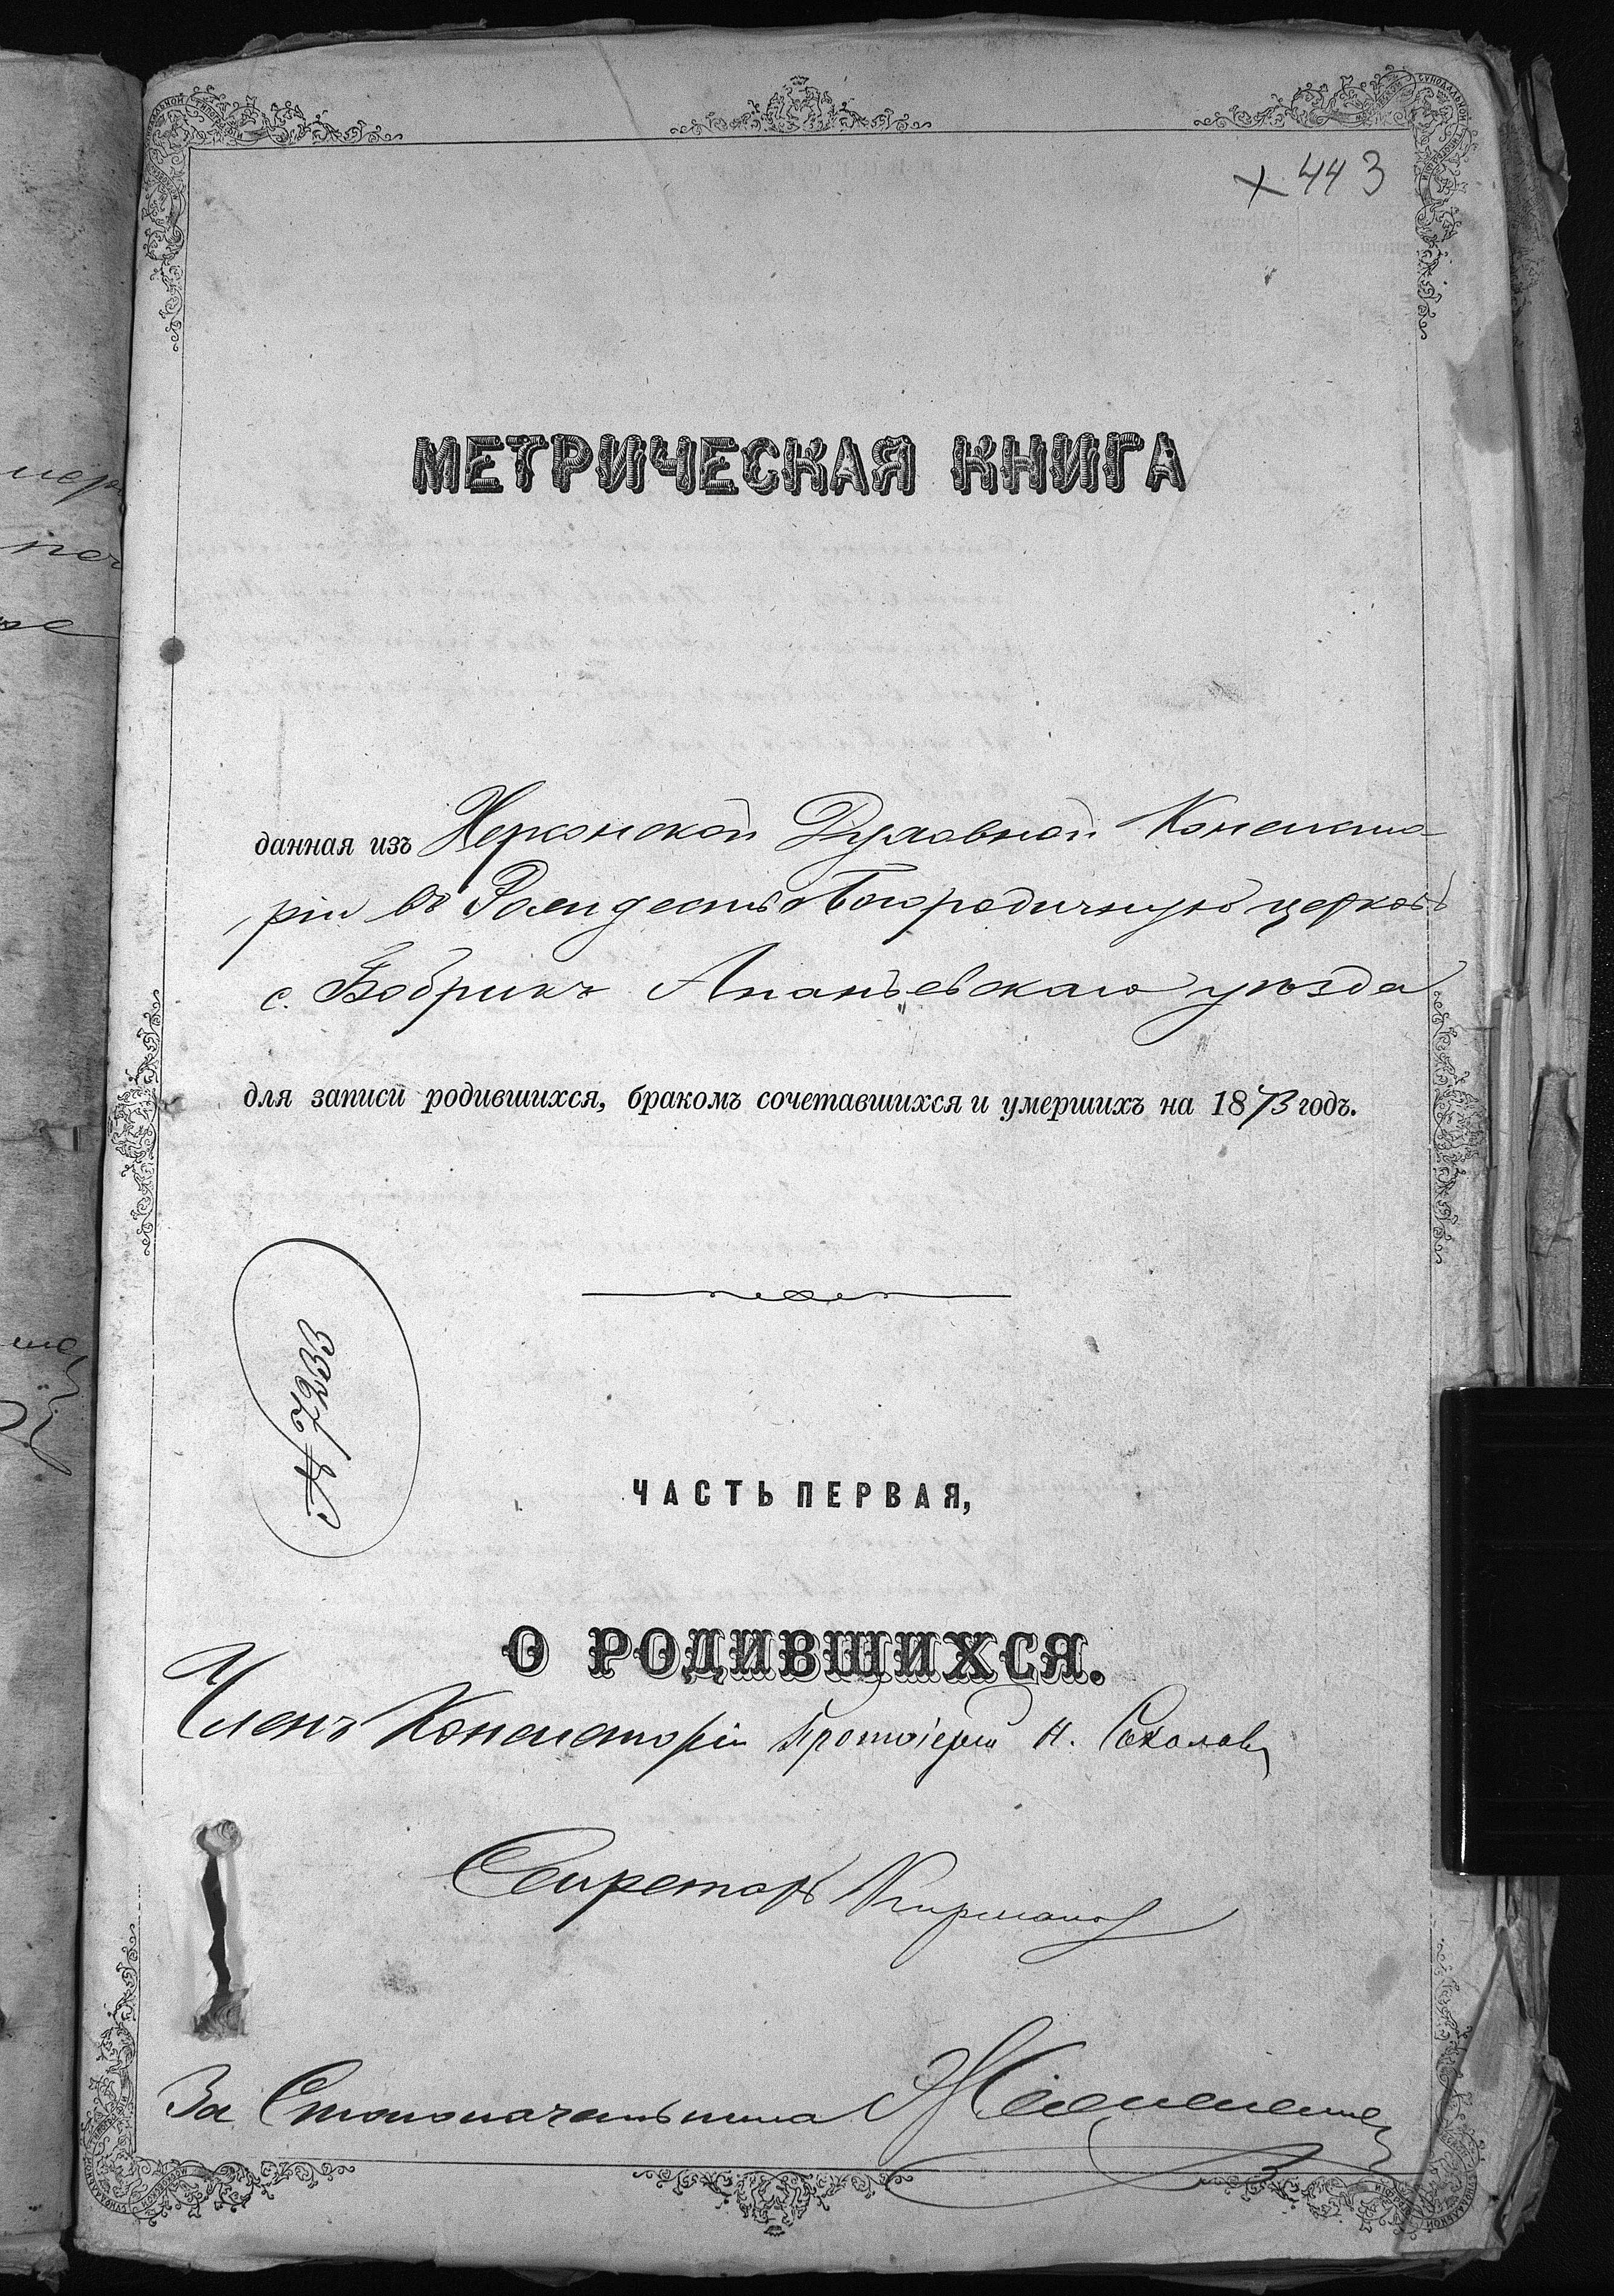 443
МЕТРИЧЕСКАЯ КНИГА
данная изъ Херсонской Духовной Консисто-
ріи въ Рождество Богородичную церковь
с. Бобрикъ Ананьевскаго уѣзда
для записи родившихся, бракомъ сочетавшихся и умершихъ на 1873 годъ.
ЧАСТЬ ПЕРВАЯ,
О РОДИВШИХСЯ.
Членъ Консисторіи Протоіерей Н. Соколовъ
Секретарь
За Столоначальника